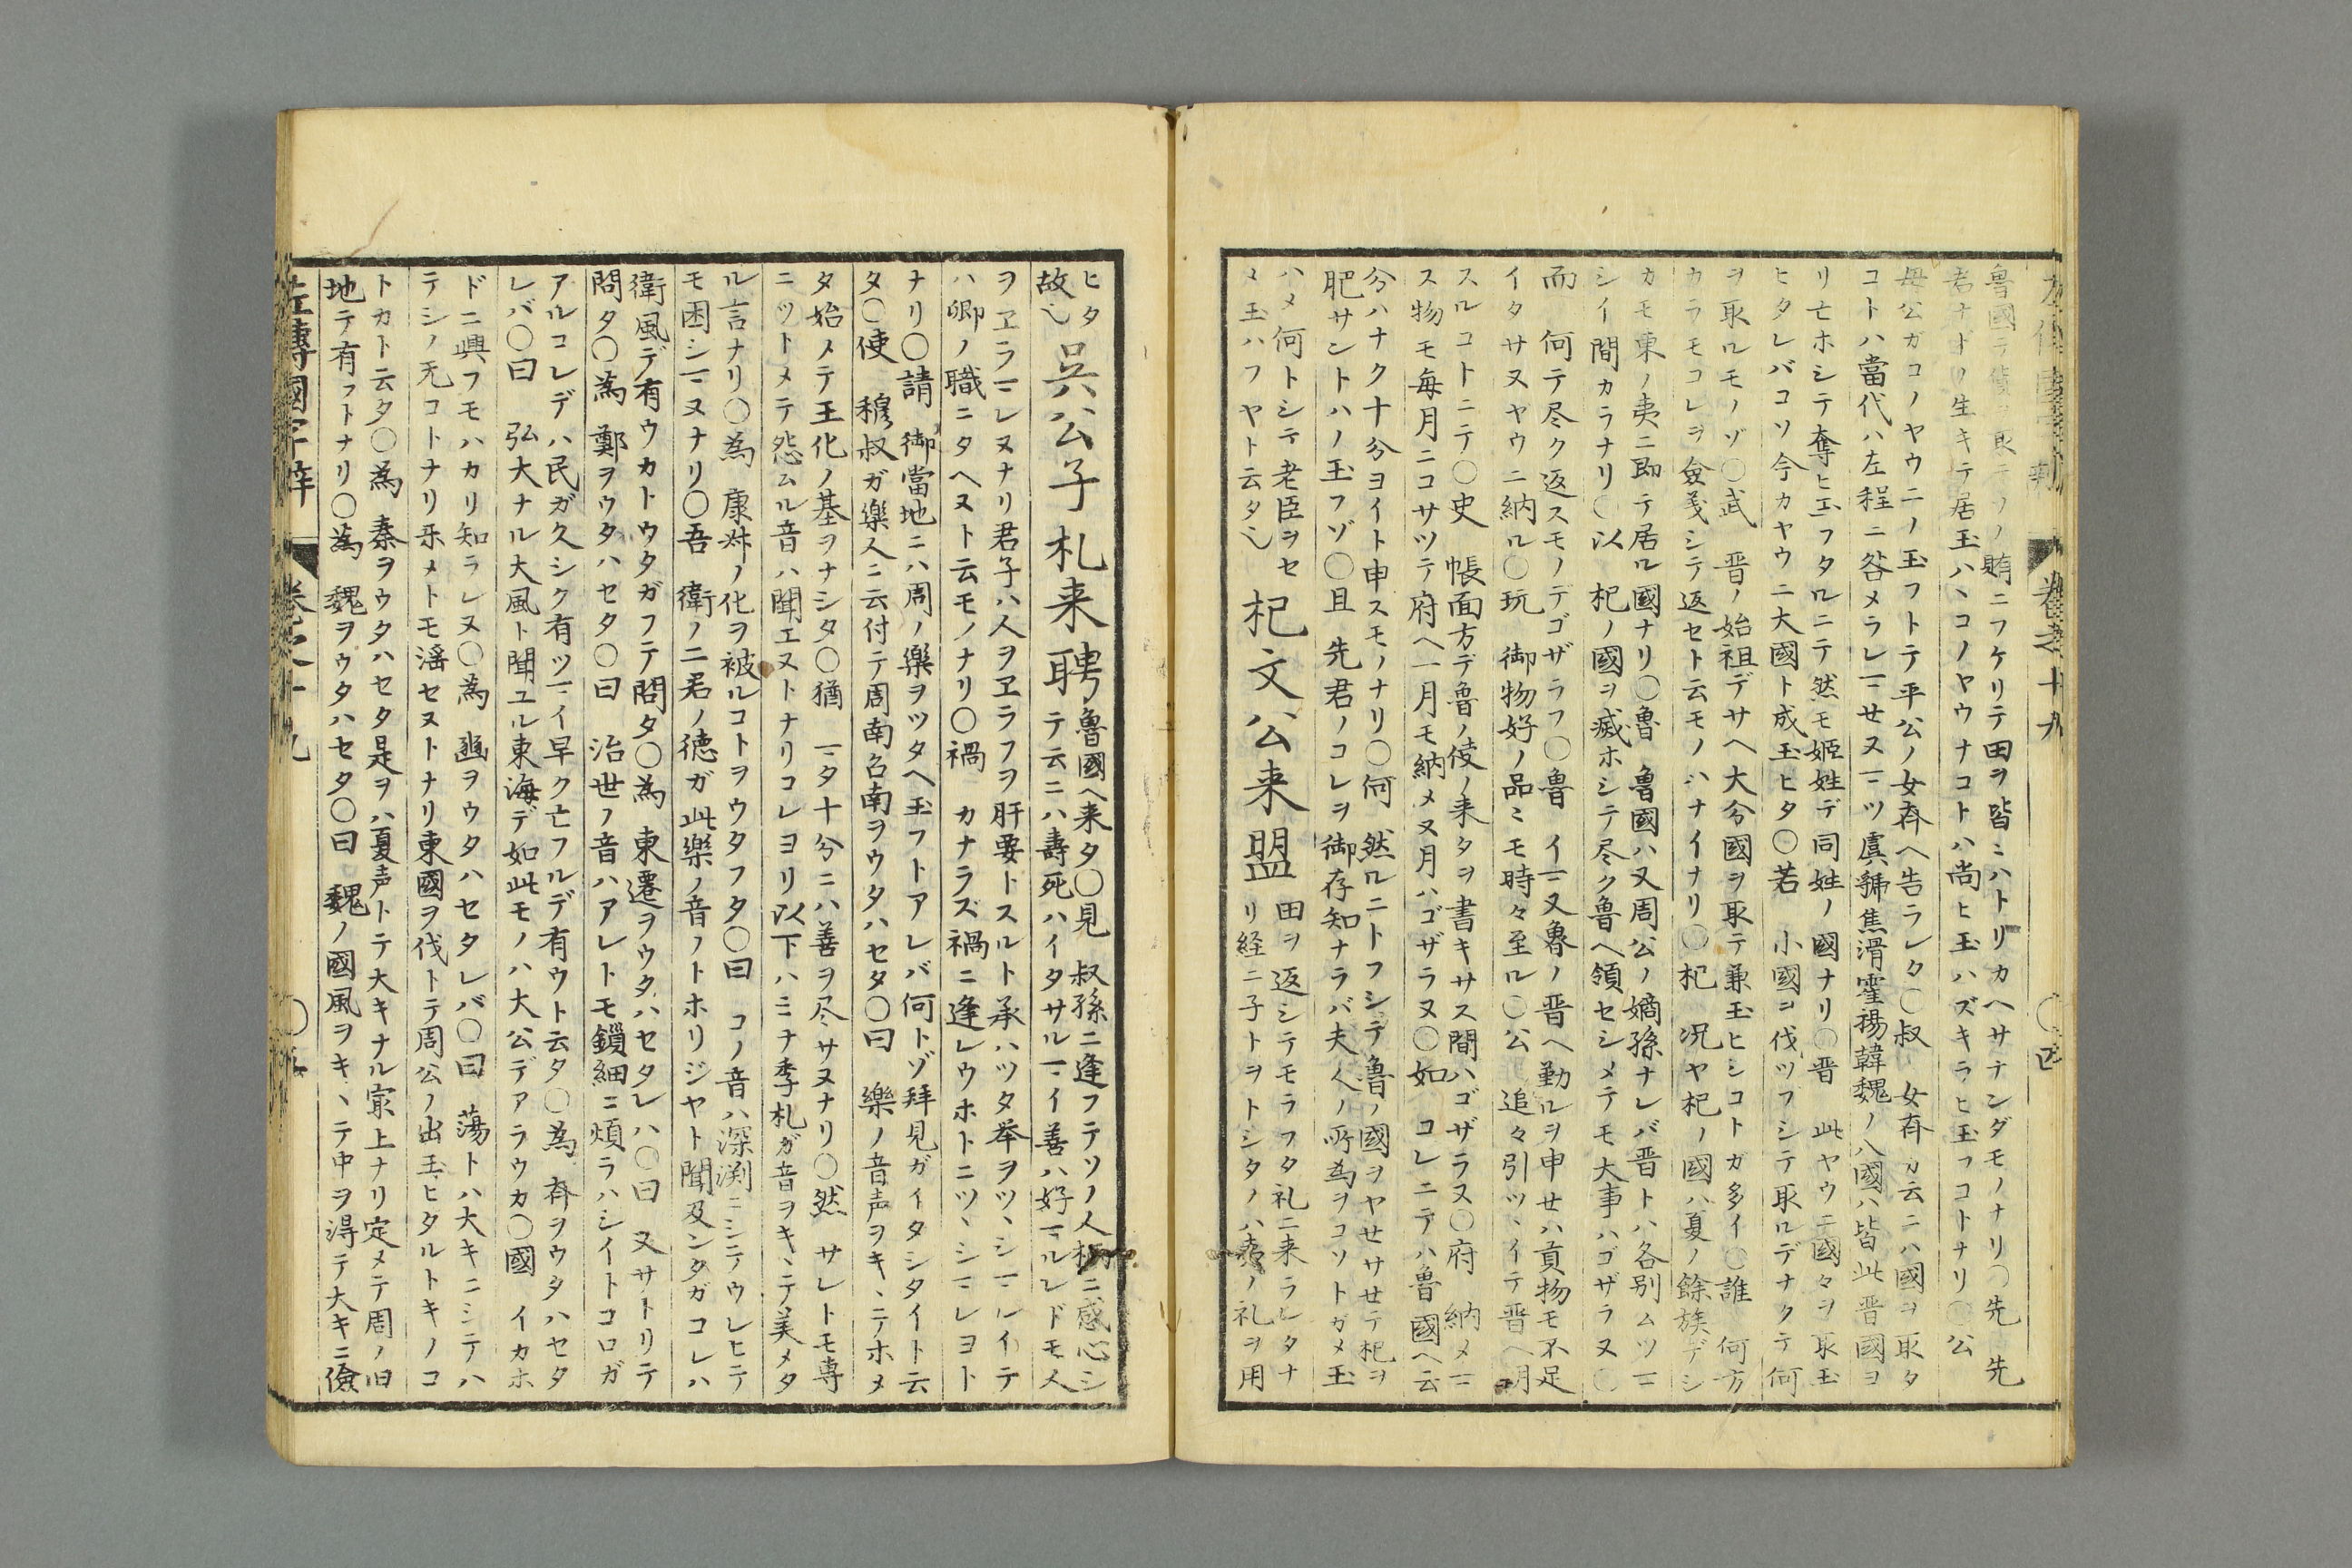 魯國ヲ テ ノ賄ニフケリテ田ヲ皆ニハトリカヘサナンダモノナリ〇先 先
君ナドノ生キテ居玉ハヽコノヤウナコトハ尚ヒ玉ハズキラヒ玉フコトナリ〇公
母公ガコノヤウニノ玉フトテ平公ノ女斉ヘ告ラレタ〇叔 女斉カ云ニハ國ヲ取タ
コトハ當代ハ左程ニ咎メラレマセヌマツ虞虢焦滑霍揚韓魏ノ八國ハ皆此晋國ヨ
リ亡ホシテ奪ヒ玉フタルニテ然モ姫姓デ同姓ノ國ナリ〇晋 此ヤウニ國々ヲ取玉
ヒタレバコソ今カヤウニ大國ト成玉ヒタ〇若 小國ヲ伐ツフシテ取ルデナクテ何
ヲ取ルモノゾ〇武 晋ノ始祖デサヘ大分國ヲ取テ兼玉ヒシコトガ多イ〇誰 何方
カラモコレヲ僉義シテ返セト云モノハナイナリ〇杞 况ヤ杞ノ國ハ夏ノ餘族デシ
カモ東ノ夷ニ即テ居ル國ナリ〇魯 魯國ハ又周公ノ嫡孫ナレバ晋トハ各别ムツマ
シイ間カラナリ〇以 杞ノ國ヲ滅ホシテ尽ク魯ヘ領セシメテモ大事ハゴザラヌ〇
而 何テ尽ク返スモノデゴザラフ〇魯 イマ又魯ノ晋ヘ勤ルヲ申セハ貢物モ不足
イタサヌヤウニ納ル〇玩 御物好ノ品ミモ時々至ル〇公 追々引ツヽイテ晋ヘ朝
スルコトニテ〇史 帳面方デ魯ノ使ノ来タヲ書キサス間ハゴザラヌ〇府 納メマ
ス物モ毎月ニコサツテ府ヘ一月モ納メヌ月ハゴザラヌ〇如 コレニテハ魯國ヘ云
分ハナク十分ヨイト申スモノナリ〇何 然ルニトフシテ魯ノ國ヲヤセサセテ杞ヲ
肥サントハノ玉フゾ〇且 先君ノコレヲ御存知ナラバ夫人ノ所為ヲコソトガメ玉
ハメ何トシテ老臣ヲセ
メ玉ハフヤト云タ〻
杞文公来盟
田ヲ返シテモラフタ礼ニ来ラレタナ
リ経ニ子トヲトシタノハ夷ノ礼ヲ用
ヒタ
故〻
呉公子札来聘
魯國ヘ来タ〇見 叔孫ニ逢フテソノ人柄ニ感心シ
テ云ニハ壽死ハイタサルマイ善ハ好マルレドモ人
ヲヱラマレヌナリ君子ハ人ヲヱラフヲ肝要トスルト承ハツタ举ヲツヽシマルイテ
ハ卿ノ職ニタヘヌト云モノナリ〇禍 カナラズ禍ニ逢レウホトニツヽシマレヨト
ナリ〇請 御當地ニハ周ノ樂ヲツタヘ玉フトアレバ何トゾ拜見ガイタシタイト云
タ〇使 穆叔ガ樂人ニ云付テ周南召南ヲウタハセタ〇曰 樂ノ音声ヲキヽテホメ
タ始メテ王化ノ基ヲナシタ〇猶 マタ十分ニハ善ヲ尽サヌナリ〇然 サレトモ専
ニツトメテ怨ムル音ハ聞エヌトナリコレヨリ以下ハミナ季札ガ音ヲキヽテ美メタ
ル言ナリ〇為 康叔ノ化ヲ被ルコトヲウタフタ〇曰 コノ音ハ深渕ニシテウレヒテ
モ困シマヌナリ〇吾 衛ノ二君ノ徳ガ此樂ノ音ノトホリジヤト聞及ンダガコレハ
衛風デ有ウカトウタガフテ問タ〇為 東遷ヲウタハセタレハ〇曰 又サトリテ
問タ〇為 鄭ヲウタハセタ〇曰 治世ノ音ハアレトモ鎖細ニ煩ラハシイトコロガ
アルコレデハ民ガ久シク有ツマイ早ク亡フルデ有ウト云タ〇為 斉ヲウタハセタ
レバ〇曰 弘大ナル大風ト聞ユル東海デ如此モノハ大公デアラウカ〇國 イカホ
ドニ興フモハカリ知ラレヌ〇為 豳ヲウタハセタレバ〇曰 蕩トハ大キニシテハ
テシノ无コトナリ樂メトモ滛セヌトナリ東國ヲ伐トテ周公ノ出玉ヒタルトキノコ
トカト云タ〇為 秦ヲウタハセタ是ヲハ夏声トテ大キナル宲上ナリ定メテ周ノ旧
地テ有フトナリ〇為 魏ヲウタハセタ〇曰 魏ノ國風ヲキヽテ中ヲ得テ大キニ儉
左傳國字辯 卷之十九